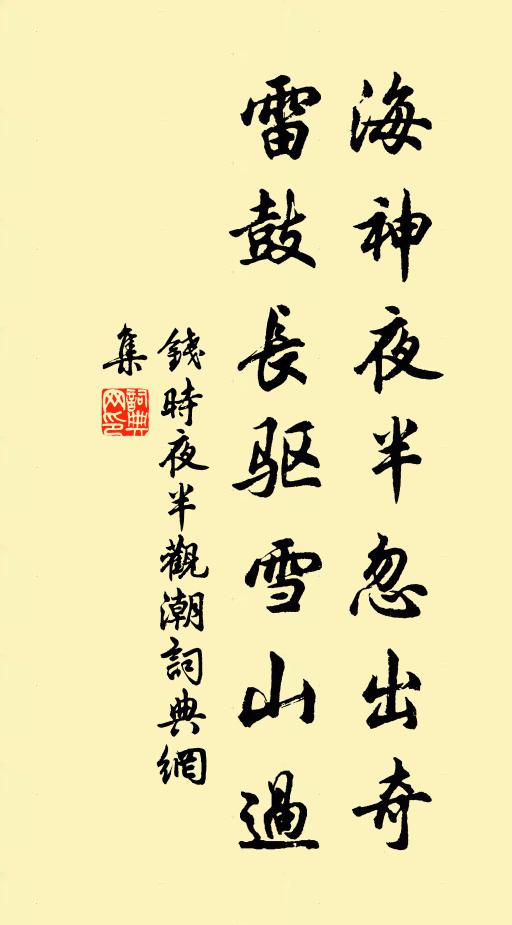 海神夜半忽出奇
雷鼓長驱雪山過
錢時夜半觀潮詞典網
集
詞典
网印